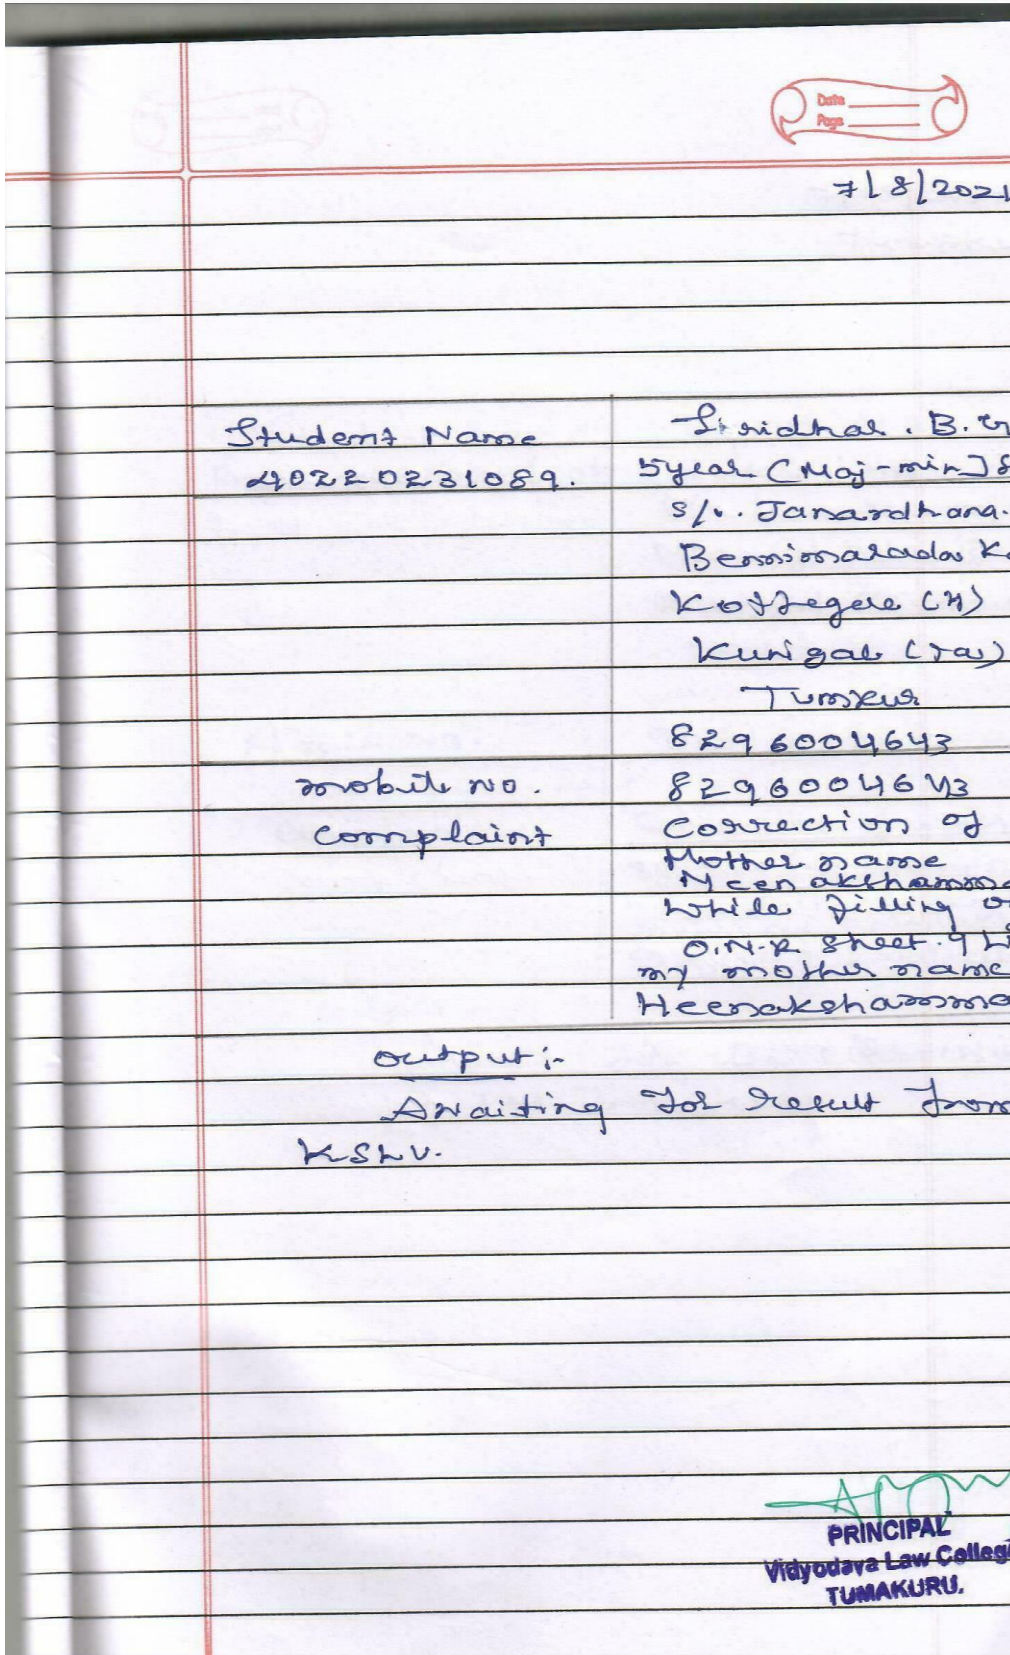 Date
Page
7/8/2021
Student Name Siridhar. B.
40220231089. 5year (Maj-min]
S/o. Janardhana.
Bennimarada
Kottegere (H)
Kunigal (Tal)
Tumkur
8296004643
mobile no. 8296004643
complaint Correction of
Mother name
Meenakshamma
while filling
O.M.R Sheet.
my mother name
Heenakshamma
output:-
Awaiting for result from
KSLU.
PRINCIPAL
Vidyodaya Law College
TUMAKURU.